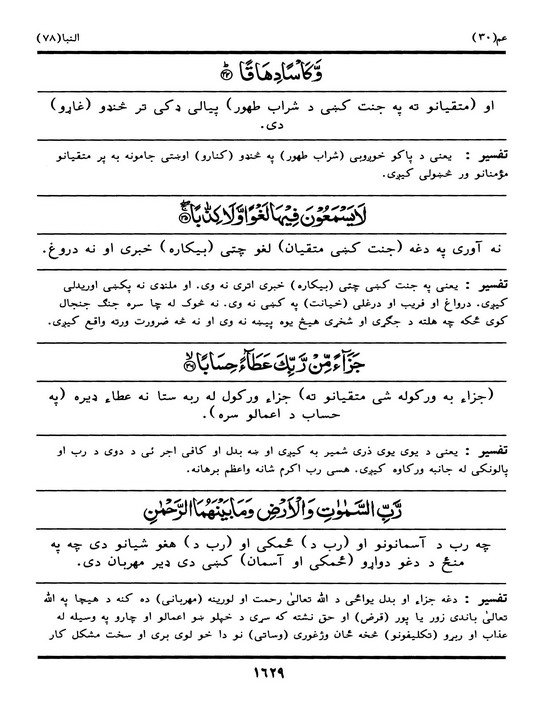 عم (٣٠) النبا (٧٨)
وَّكَأْسًا دِهَاقًا ﴿٣٤﴾
او (متقيانو ته په جنت کښی د شراب طهور) پیالی ډکی تر څنډو (غاړو)
دی.
تفسیر : یعنی د پاکو خوړوبی (شراب طهور) په څنډو (کنارو) اوښتی جامونه به پر متقیانو
مؤمنانو ور څښولی کیږی.
لَا يَسْمَعُوْنَ فِيْهَا لَغْوًا وَّلَا كِذّٰبًا ﴿٣٥﴾
نه آوری په دغه (جنت کښی متقیان) لغو چتی (بیکاره) خبری او نه دروغ.
تفسیر : یعنی په جنت کښی چتی (بیکاره) خبری اتری نه وی. او ملنډی نه پکښی اوریدلی
کیږی. درواغ او فریب او درغلی (خیانت) په کښی نه وی. نه څوک له چا سره جنګ جنجال
کوی ځکه چه هلته د جګړی او شخړی هیڅ یوه پیښه نه وی او نه څه ضرورت ورته واقع کیږی.
جَزَآءً مِّنْ رَّبِّكَ عَطَآءً حِسَابًا ﴿٣٦﴾
(جزاء به ورکوله شی متقیانو ته) جزاء ورکول له ربه ستا نه عطاء ډیره (په
حساب د اعمالو سره).
تفسیر : یعنی د یوی یوی ذری شمیر به کیږی او ښه بدل او کافی اجر ئی د دوی د رب او
پالونکی له جانبه ورکاوه کیږی. هسی رب اکرم شانه واعظم برهانه.
رَّبِّ السَّمٰوٰتِ وَالْاَرْضِ وَمَا بَيْنَهُمَا الرَّحْمٰنِ
چه رب د آسمانونو او (رب د) ځمکی او (رب د) هغو شیانو دی چه په
منځ د دغو دواړو (ځمکی او آسمان) کښی دی ډیر مهربان دی.
تفسیر : دغه جزاء او بدل یواځی د الله تعالیٰ رحمت او لورینه (مهربانی) ده کنه د هیچا په الله
تعالیٰ باندی زور یا پور (قرض) او حق نشته که سړی د خپلو ښو اعمالو او چارو په وسیله له
عذاب او ربړو (تکلیفونو) څخه ځان وژغوری (وساتی) نو دا خو لوی بری او سخت مشکل کار
١٦٢٩